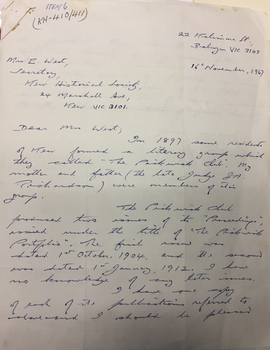 ITEM 6
(KH-410/411)
Vic 3103
16th November, 1967
Mrs E West,
Secretary,
Kew Historical Society,
24 Marshall Ave,
Kew VIC 3101.
Dear Mrs West,
In 1897 some residents
of Kew formed a literary group which
they called "The Pickwick Club". My
mother and father (the late Judge
Richardson) were members of the
group.
The Pickwick Club
produced two issues of its "Proceedings",
issued under the title of "The Pickwick
Portfolio". The first issue was
dated 1st October, 1904, and the second
was dated 1st January, 1912. I have
no knowledge of any later issues.
I have one copy
of each of the publications referred to
I should be pleased